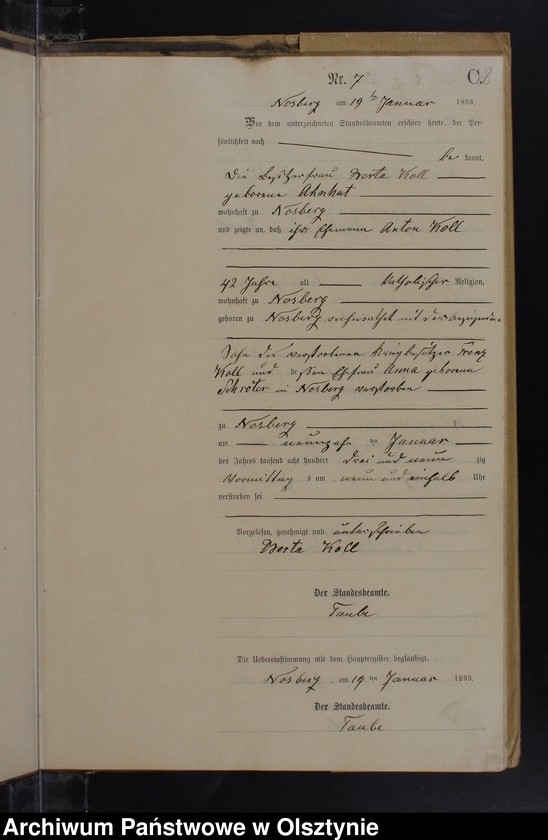 Nr. 7 C. 8
Nosberg am 19ten Januar 1893.
Vor dem unterzeichneten Standesbeamten erschien heute, der Per-
sönlichkeit nach
be kannt,
die Besitzerfrau Berta Koll
geborene Ahnhut
wohnhaft zu Nosberg
und zeigte an, daß ihr Ehemann Anton Koll
42 Jahre alt katholischer Religion,
wohnhaft zu Nosberg
geboren zu Nosberg verheirathet mit der Anzeigenden
Sohn der verstorbenen Franz
Koll und dessen Ehefrau Anna geborene
Schröter in Nosberg verstorben
zu Nosberg
am neunzehn ten Januar
des Jahres tausend acht hundert drei und neun zig
Vormittag s um neun und einhalb Uhr
verstorben sei
Vorgelesen, genehmigt und unterschrieben
Berta Koll
Der Standesbeamte.
Taube
Die Uebereinstimmung mit dem Hauptregister beglaubigt.
Nosberg am 19 ten Januar 1893.
Der Standesbeamte.
Taube
Archiwum Państwowe w Olsztynie